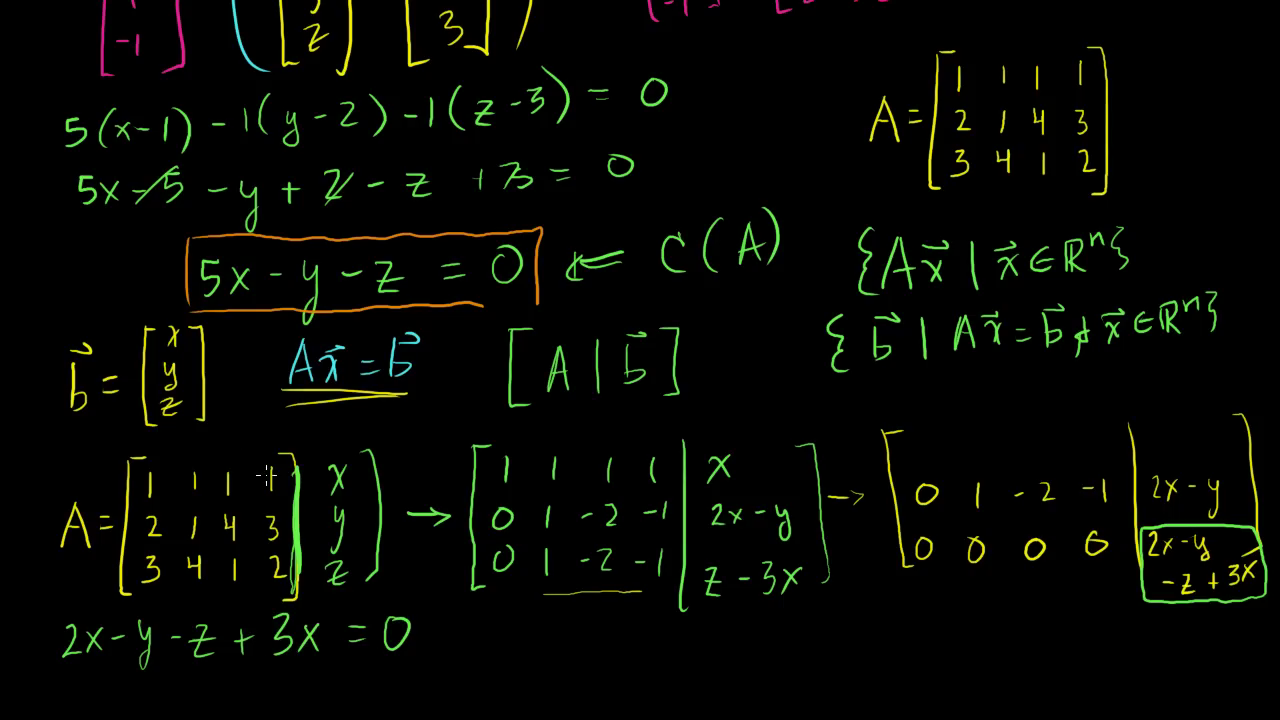 -1 z 3
5(x-1) -1(y-2) -1(z-3) = 0
5x-5 -y + 2 - z +3 = 0
A = [1 1 1 1
2 1 4 3
3 4 1 2]
5x - y - z = 0 ⇐ C(A)
{Ax⃗ | x⃗ ∈ ℝⁿ}
{ b⃗ | Ax⃗ = b⃗ & x⃗ ∈ ℝⁿ}
b⃗ = [x
y
z]
Ax⃗ = b⃗
[A | b⃗]
A = [1 1 1 1 | x
2 1 4 3 | y
3 4 1 2 | z]
→ [1 1 1 1 | x
0 1 -2 -1 | 2x-y
0 1 -2 -1 | z-3x]
→ [0 1 -2 -1 | 2x-y
0 0 0 0 | 2x-y
-z+3x]
2x-y-z+3x = 0